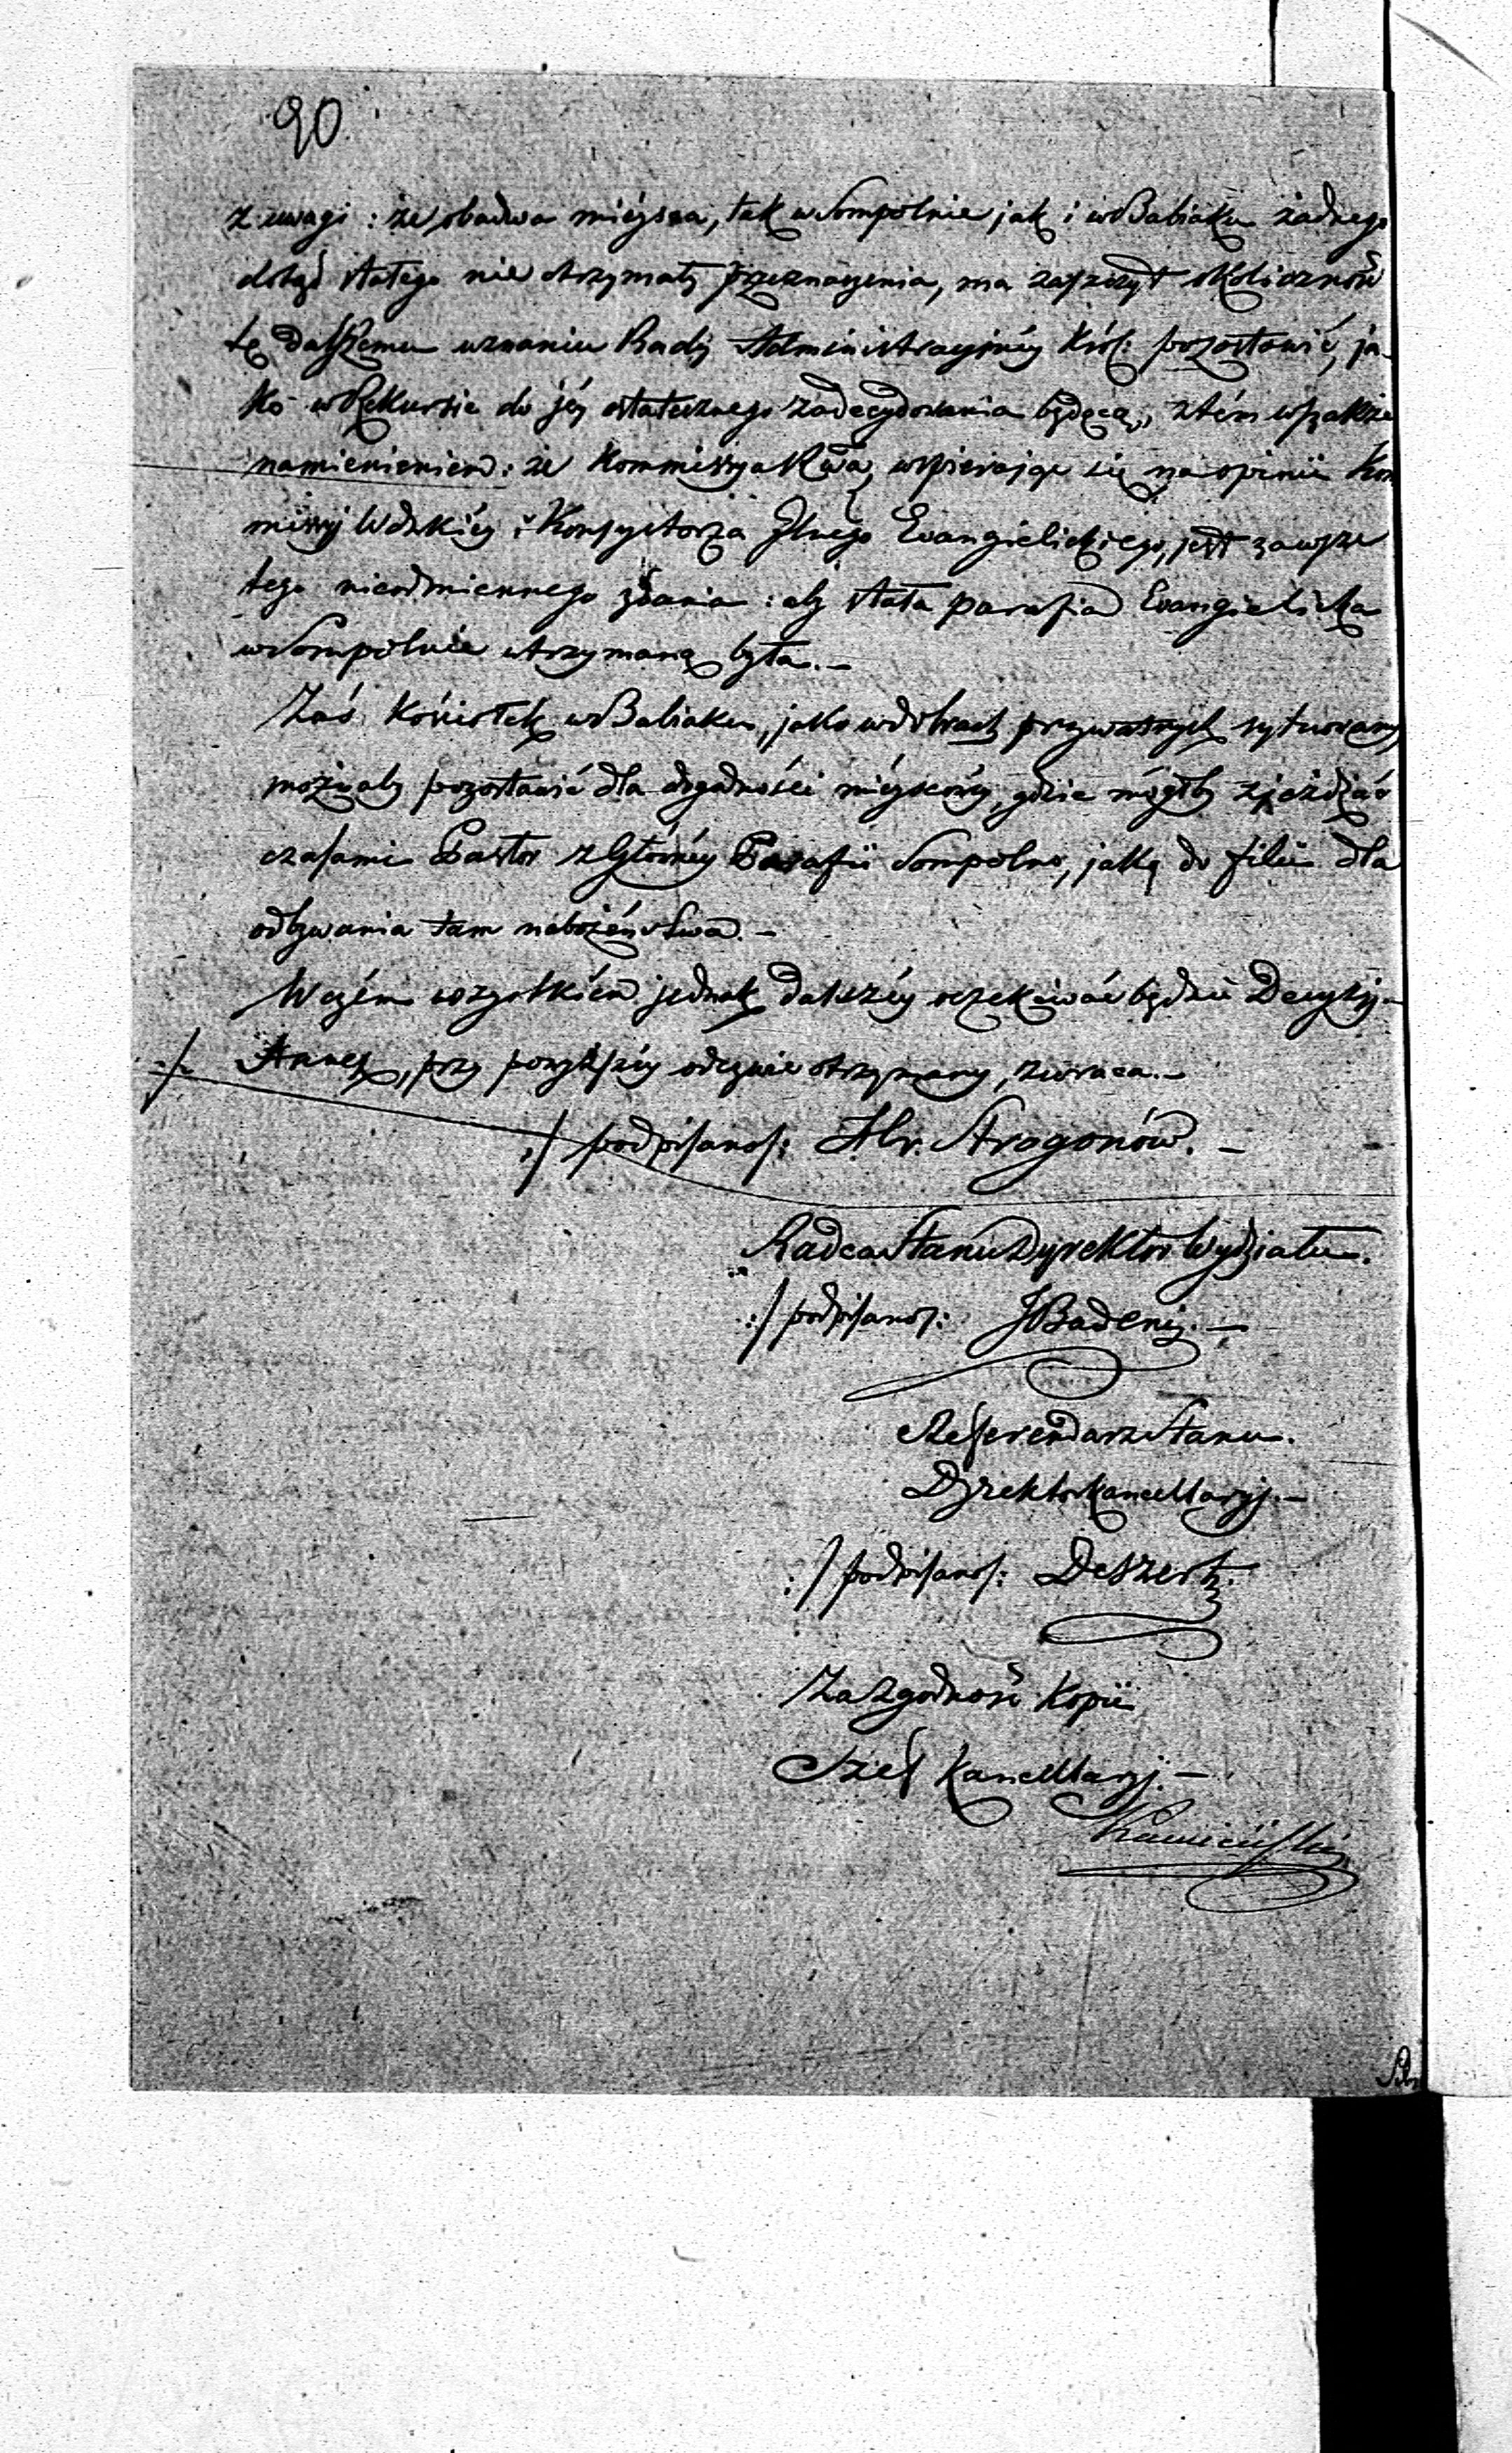 90
z uwagi: że obadwa miéysca, tak w Sompolnie jak i w Babiaku żadnego
dotąd stałego nie otrzymały przeznaczenia, ma zaszczyt okoliczność
tę dalszemu uznaniu Rady Administracyjnéy Król: pozostawić, ja-
ko w Rekursie do jéy ostatecznego zadecydowania będącą, z tém wszakże
namienieniem: że Kommissya Rwa, wspierając się na opinii Kom
missyi Wdzkiéy i Konsystorza Jlnego Ewangielickiego, jest zawsze
tego nieodmiennego zdania: aby stała parafia Ewangielicka
w Sompolnie utrzymaną była.—
Zaś Kościołek w Babiaku, jako w dobrach prywatnych sytuowany
możnaby pozostawić dla dogodności miéyscowéy, gdzie mógłby zjeżdżać
czasami Pastor z Głównéy Parafii Sompolno, jako do filii dla
odbywania tam nabożeństwa.—
W czém wszystkiém jednak dalszéy oczekiwać będzie Decyzyi.—
Annex, przy powyższéy odezwie otrzymany, zwraca.—
:/ podpisano/: Hr. Stragonów.—
Radca Stanu Dyrektor Wydziału.
:/ podpisano/: J Badeni.—
Referendarz Stanu.
Dyrektor Kancellaryi.—
:/ podpisano/: Deszert.
Za zgodność Kopii
Szef Kancellaryi.—
Kamieński